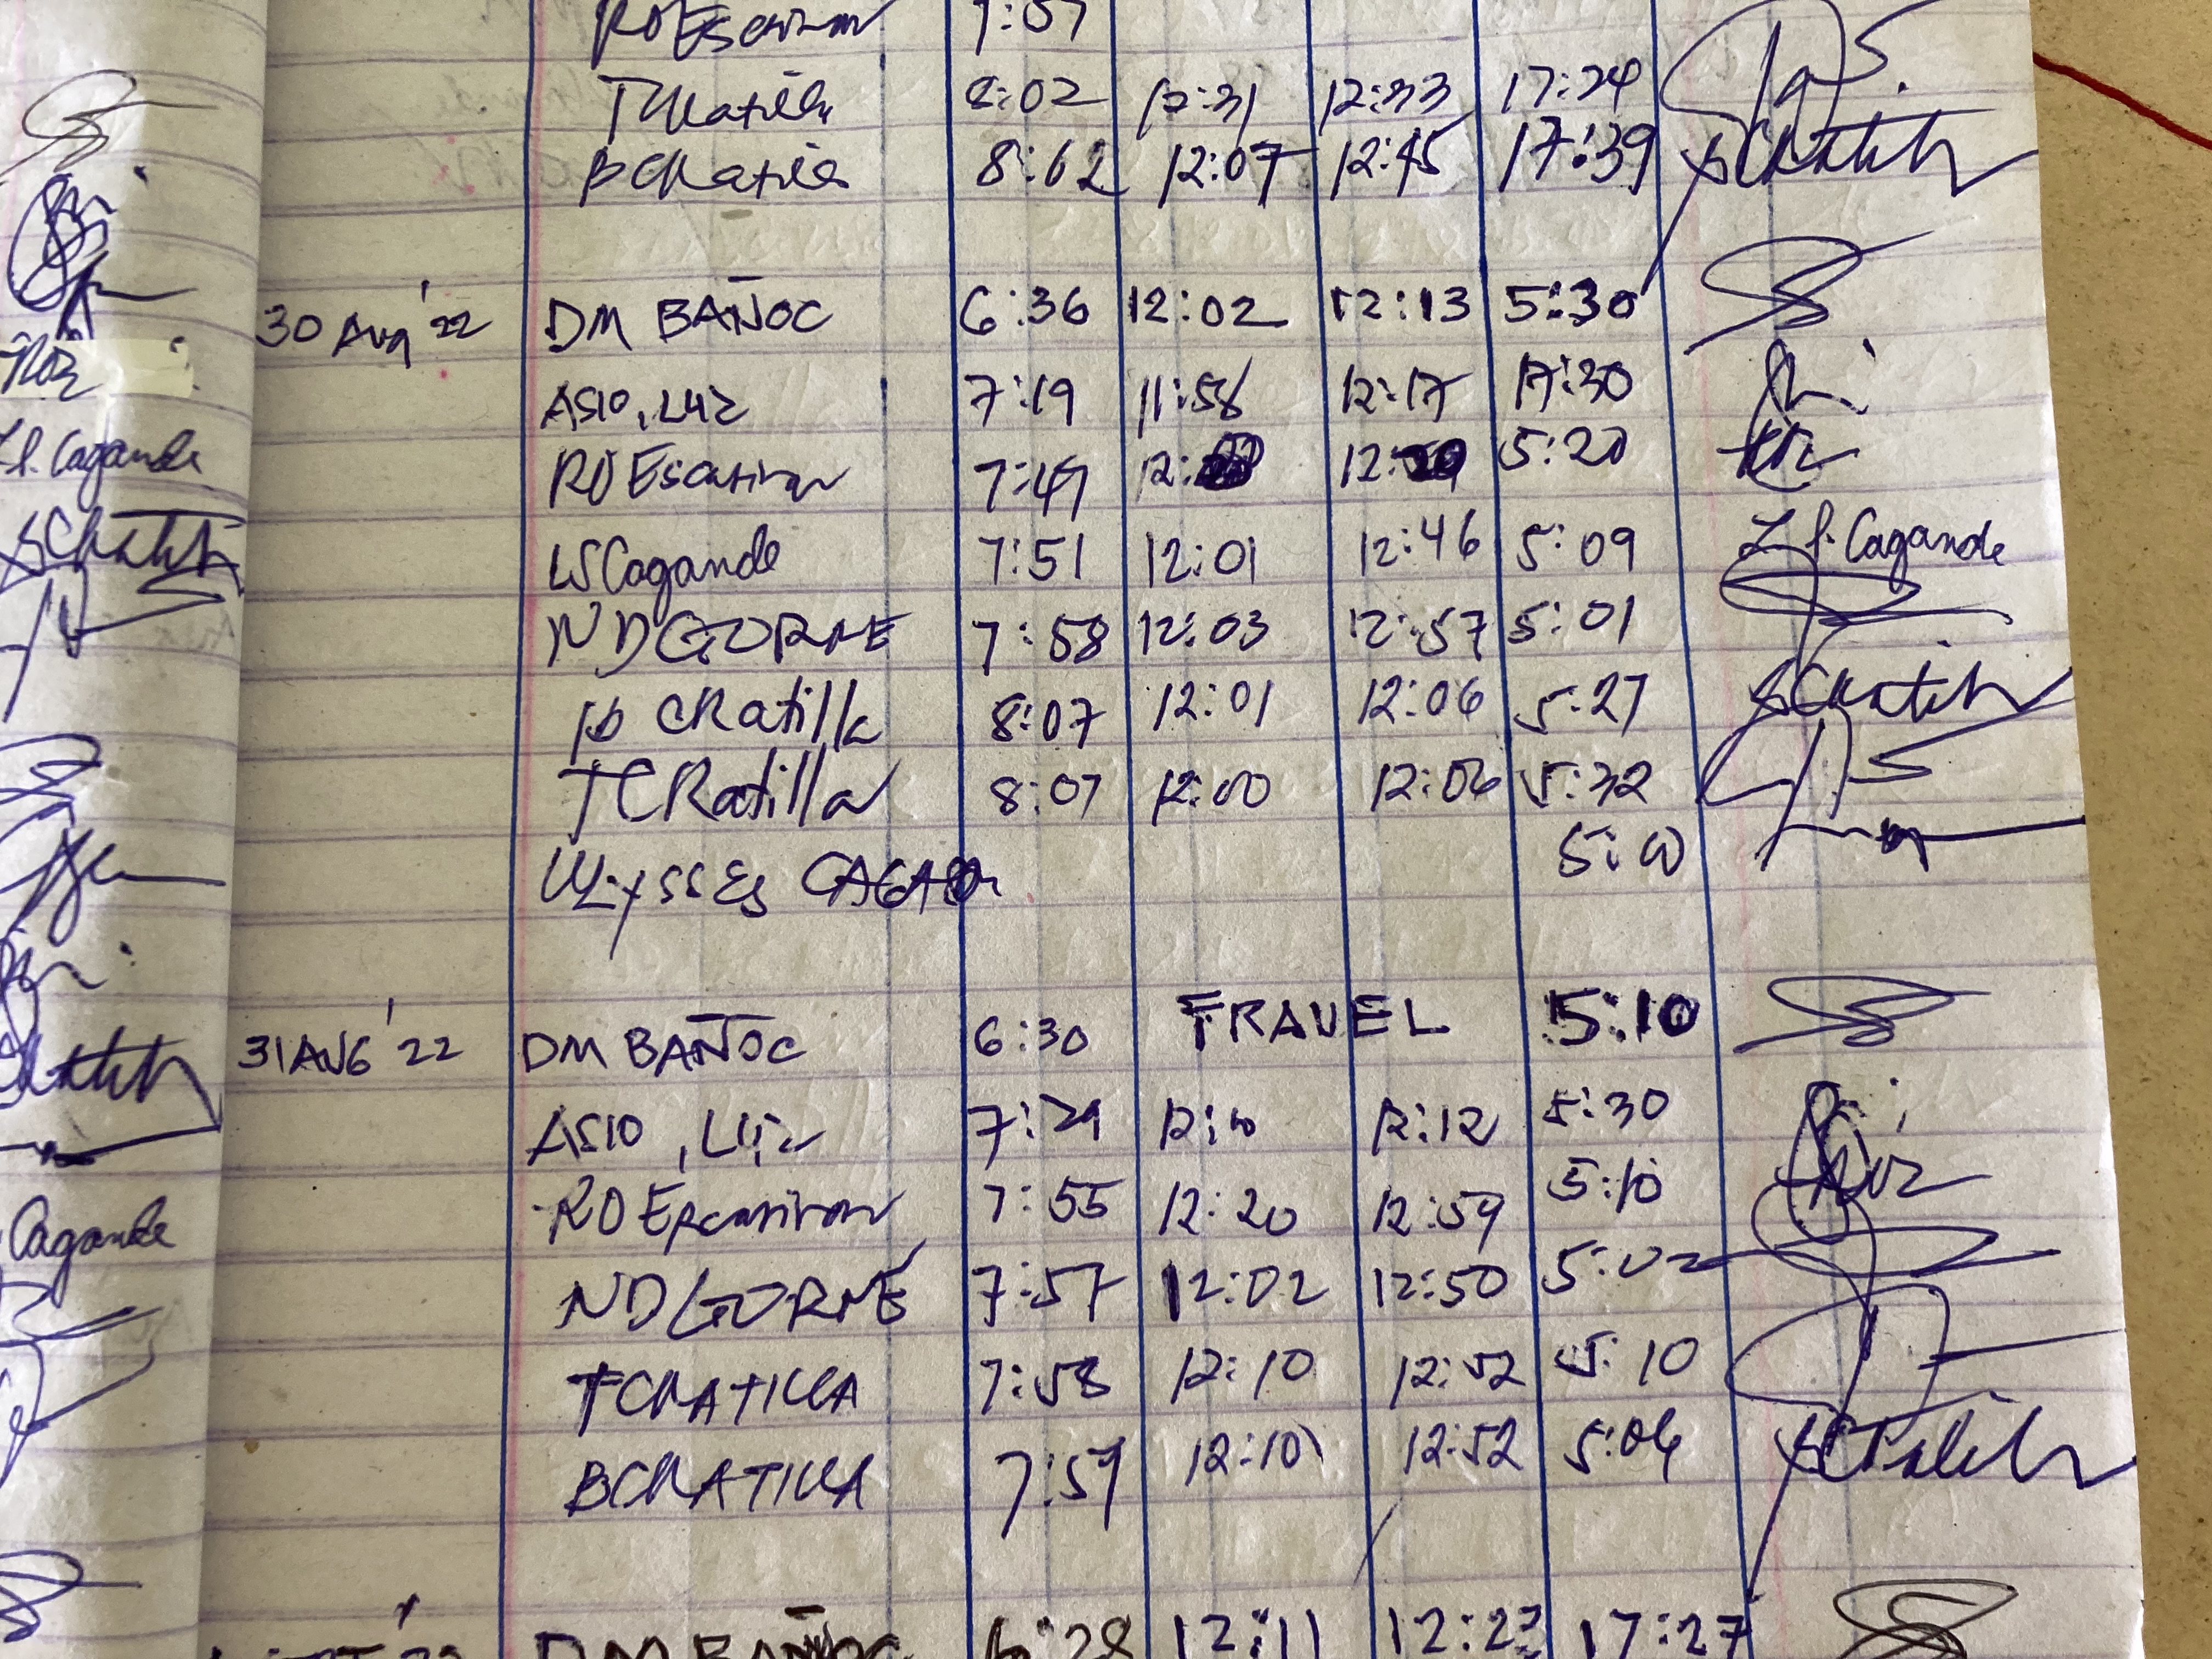 RO Escasinan 7:57
TCRatilla 8:02 12:31 12:33 17:24
BCRatilla 8:02 12:07 12:45 17:39
30 Aug '22 DM BAÑOC 6:36 12:02 12:13 5:30
ASIO, LUZ 7:19 11:58 12:17 17:30
RO Escasinan 7:49 12: 12: 5:20
LSCagande 7:51 12:01 12:46 5:09 L S. Cagande
ND GORNE 7:58 12:03 12:57 5:01
B CRatilla 8:07 12:01 12:06 5:27
TCRatilla 8:07 12:00 12:06 5:32
ULYSSES 5:00
31 AUG '22 DM BAÑOC 6:30 TRAVEL 5:10
ASIO, Luz 7:29 12:10 12:12 5:30
RO Escasinan 7:55 12:20 12:59 5:10
ND GORNE 7:57 12:02 12:50 5:02
TCRATILLA 7:58 12:10 12:52 5:10
BCRATILLA 7:59 12:10 12:52 5:06
DM BAÑOC 6:28 12:11 12:23 17:27
L.S. Cagande
Cagande